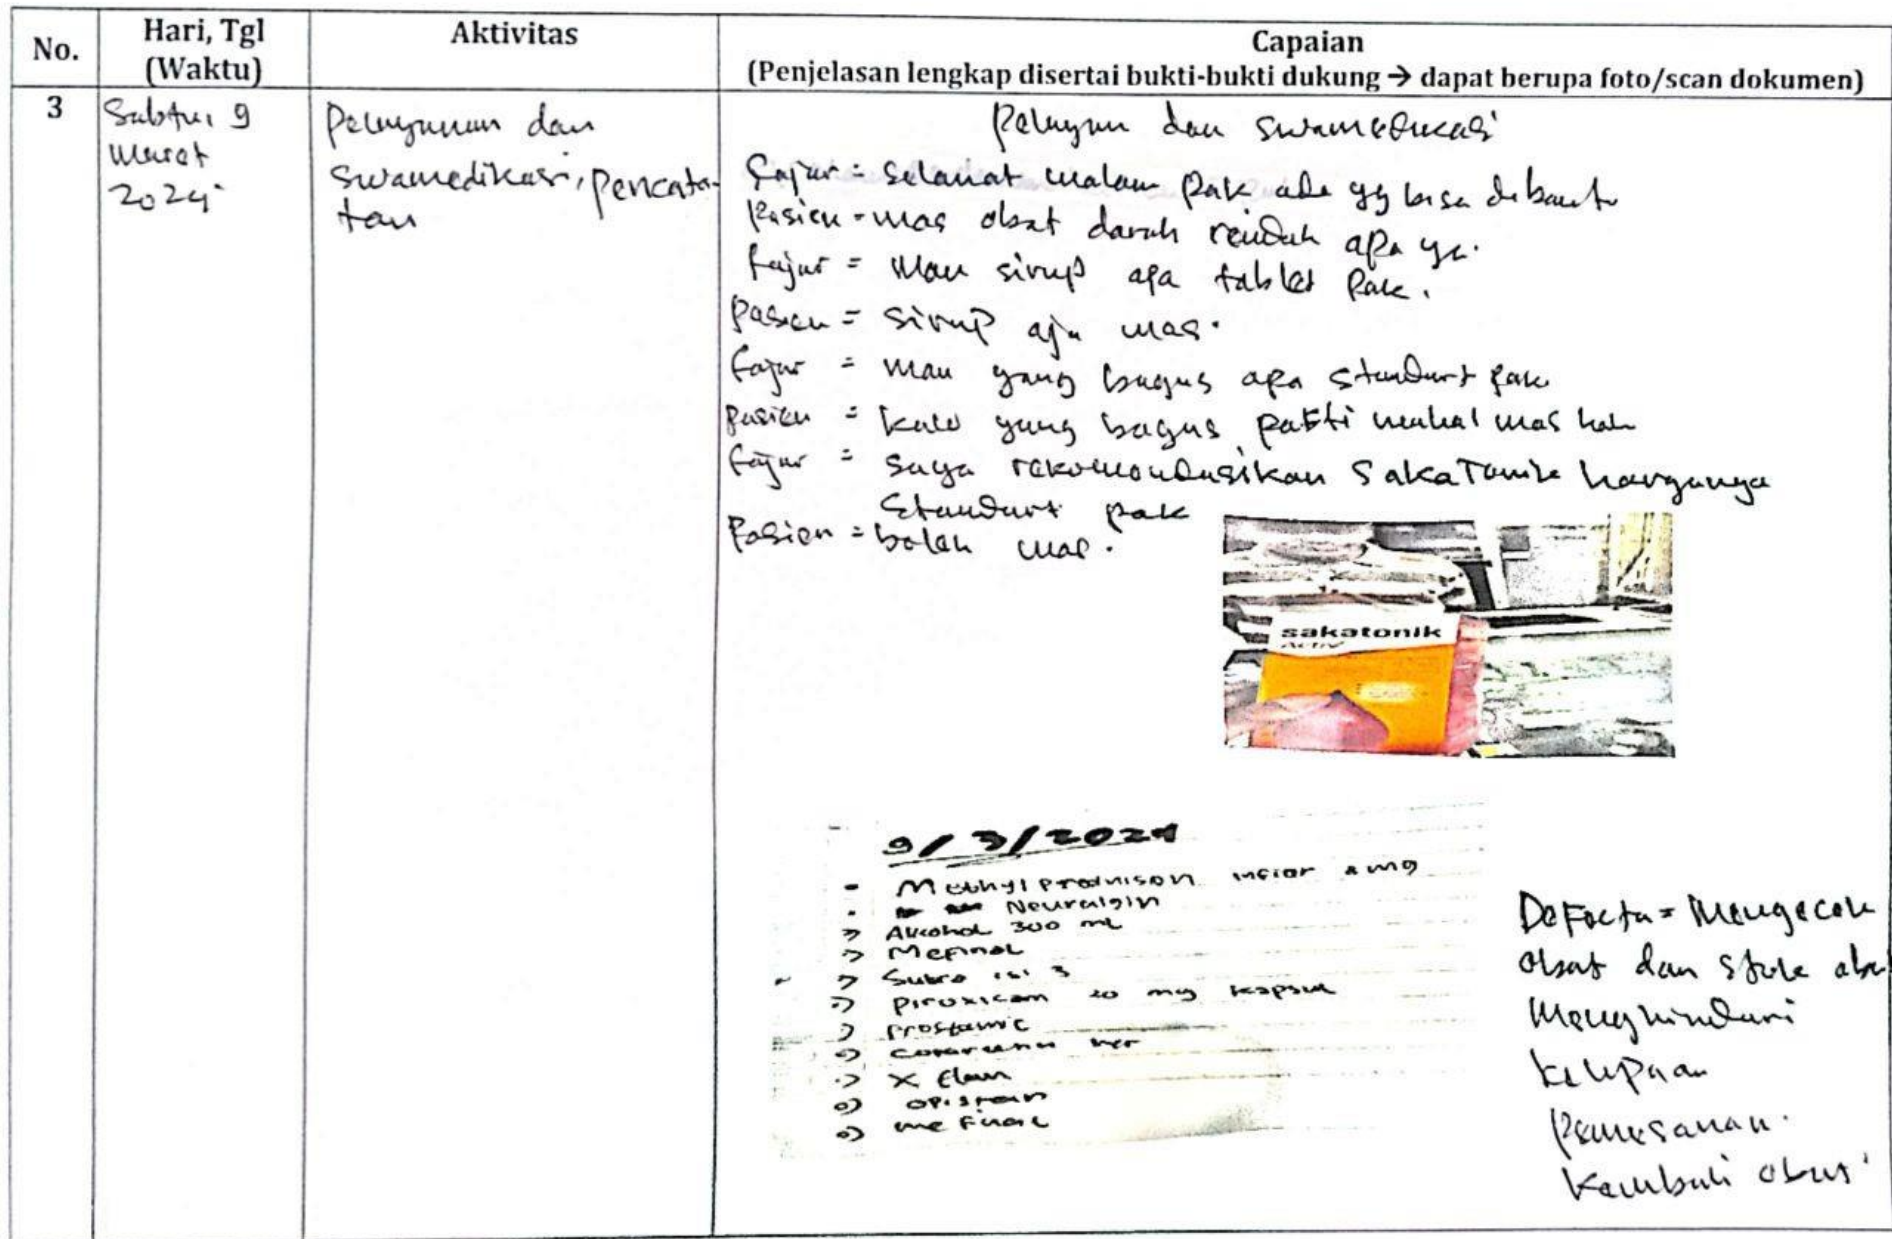 No.
Hari, Tgl
(Waktu)
Aktivitas
Capaian
(Penjelasan lengkap disertai bukti-bukti dukung → dapat berupa foto/scan dokumen)
3
Sabtu, 9
Maret
2024
Pelayanan dan
swamedikasi, pencata-
tan
Pelayan dan swamedikasi
Fajar = selamat malam pak ada yg bisa dibantu
Pasien = mas obat darah rendah apa ya.
Fajar = Mau sirup apa tablet Pak.
Pasien = sirup aja mas.
Fajar = mau yang bagus apa standart pak
Pasien = kalo yang bagus pasti mahal mas
Fajar = saya rekomendasikan SakaTonik harganya
Standart pak
Pasien = boleh mas.
sakatonik
Activ
9/3/2024
- Methyl prednison mg
- Neuralgin
Alkohol 300 ml
Mefinal
Sutra isi 3
Piroxicam 20 mg kapsul
Prostamic
X
DeFecta = Mengecek
obat dan stok
Menghindari
kelupaan
Pemesanan.
Kembali